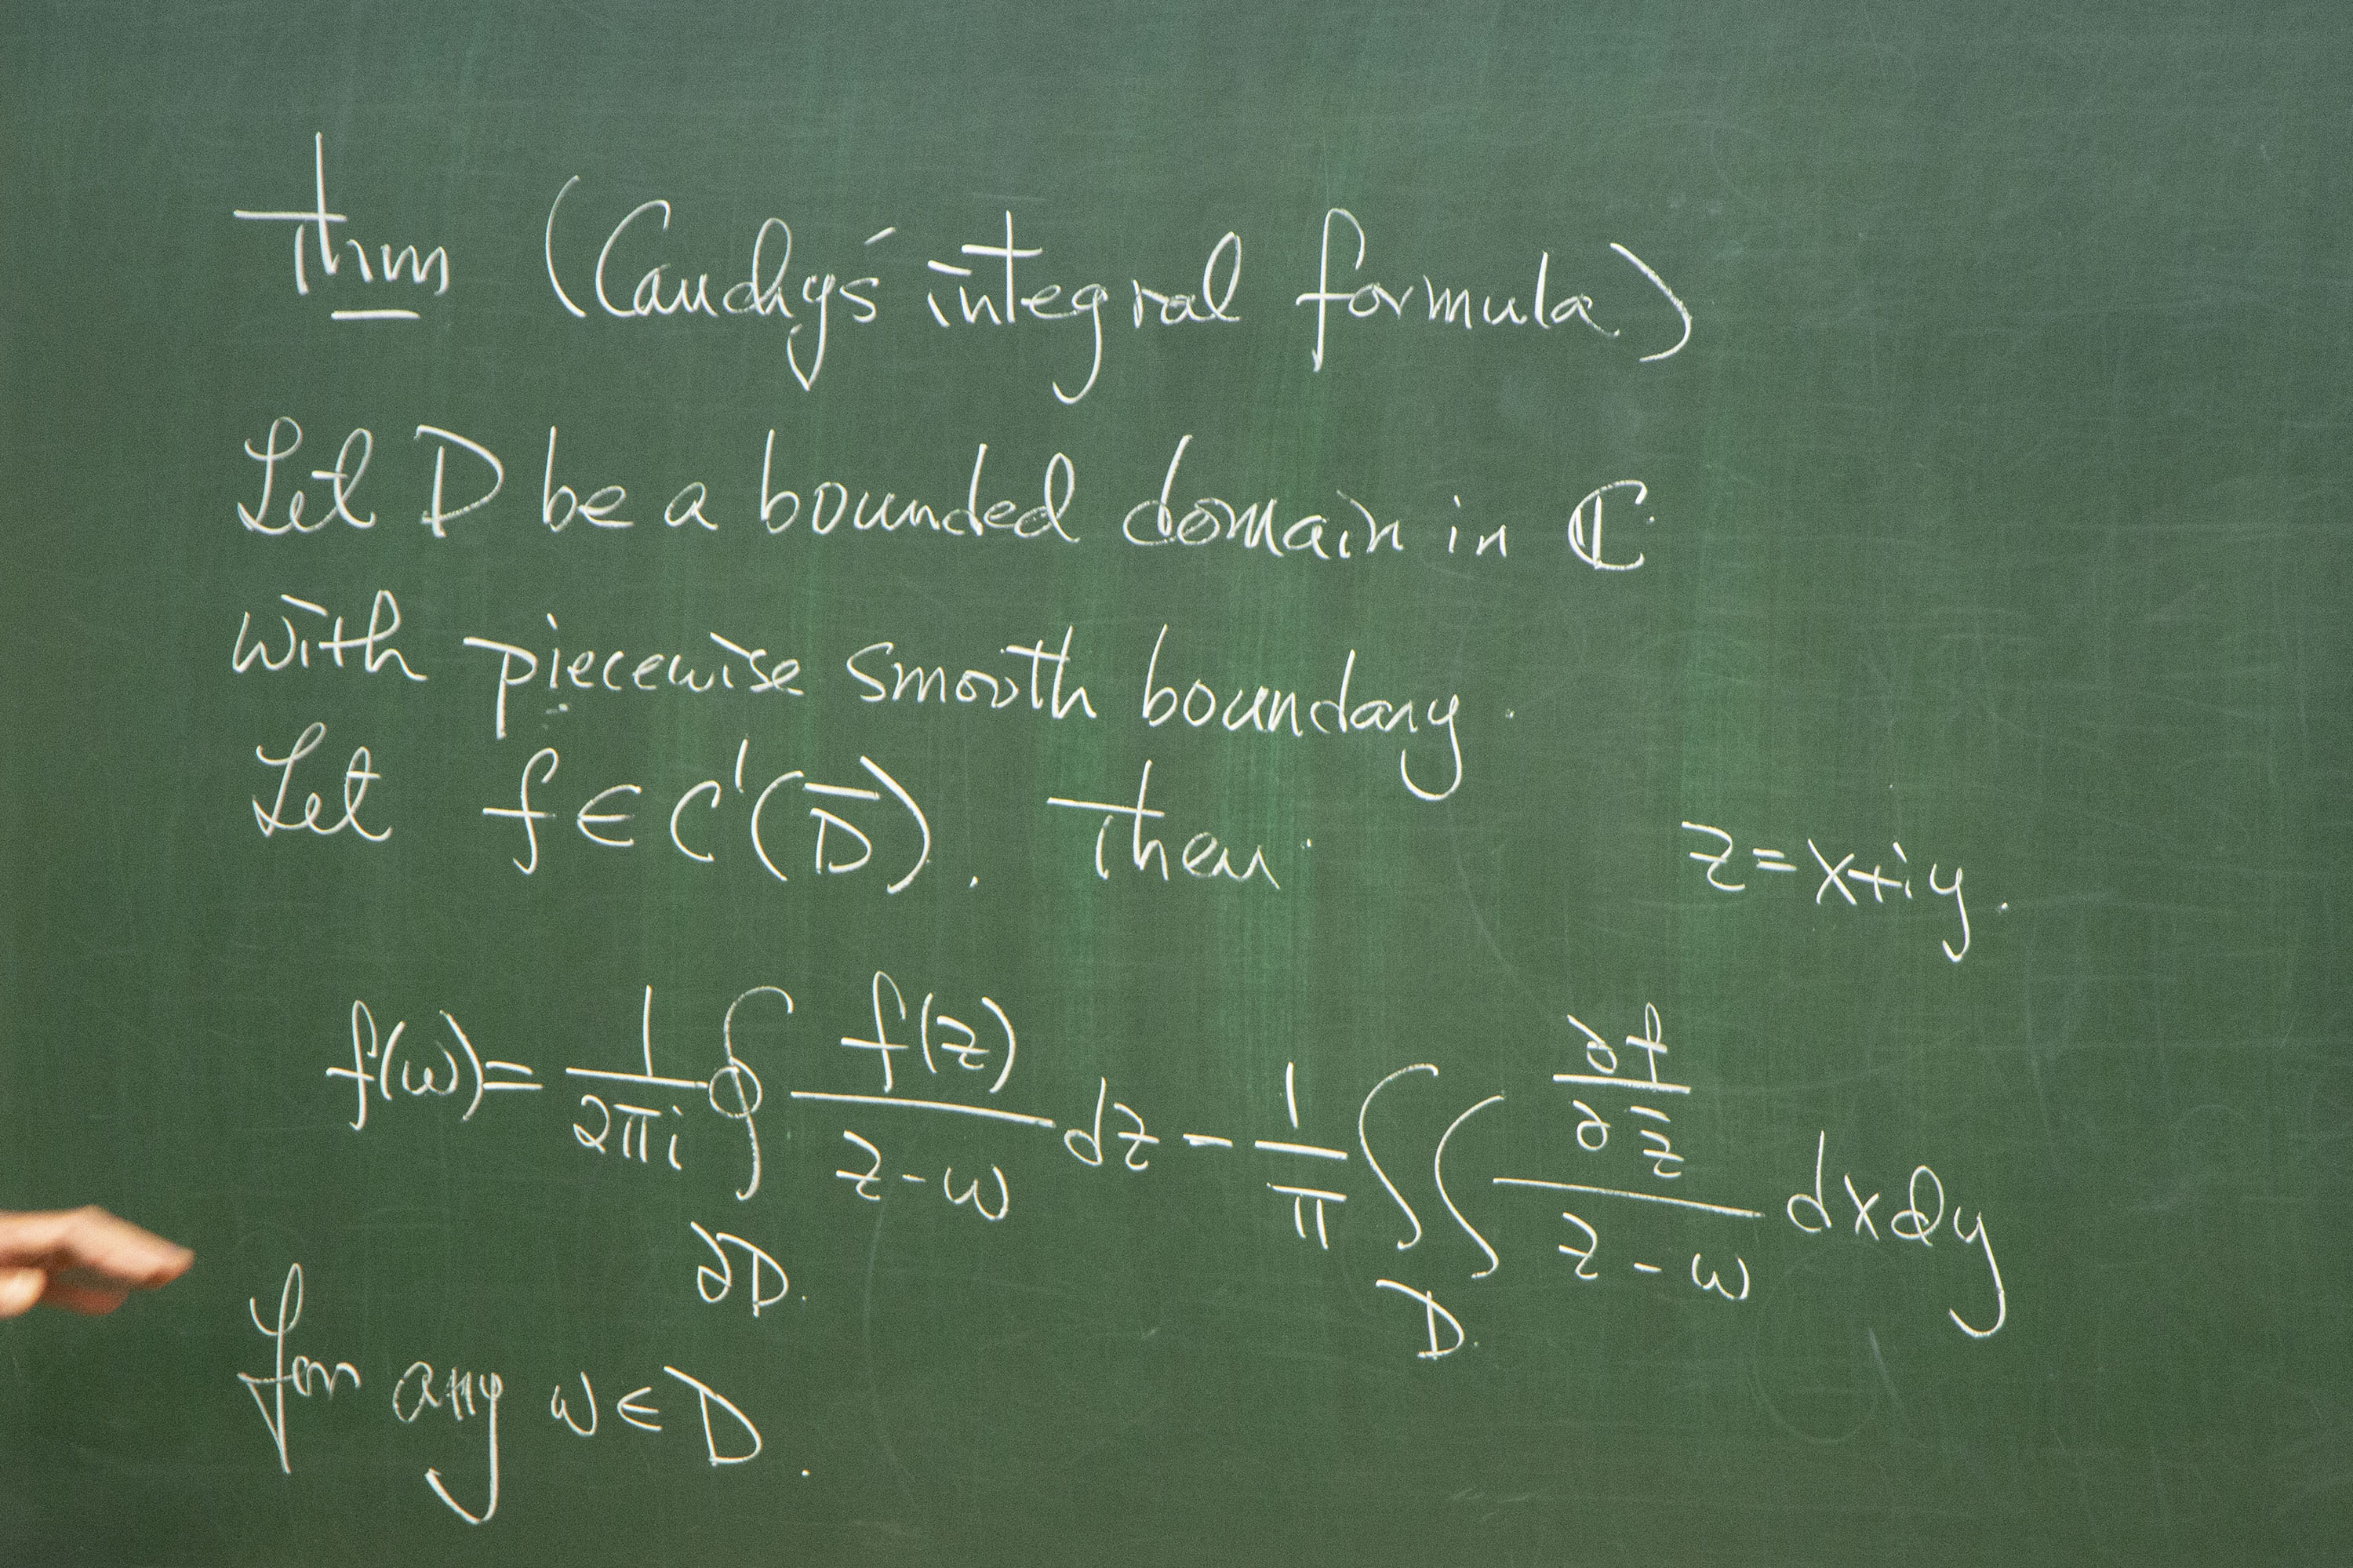 Thm (Cauchy's integral formula)
Let D be a bounded domain in ℂ
with piecewise smooth boundary.
Let f ∈ C¹(D̅). Then
z = x+iy.
f(w) = \frac{1}{2πi} ∮_{∂D} \frac{f(z)}{z-w} dz - \frac{1}{π} ∬_{D} \frac{\frac{∂f}{∂\bar{z}}}{z-w} dxdy
for any w ∈ D.